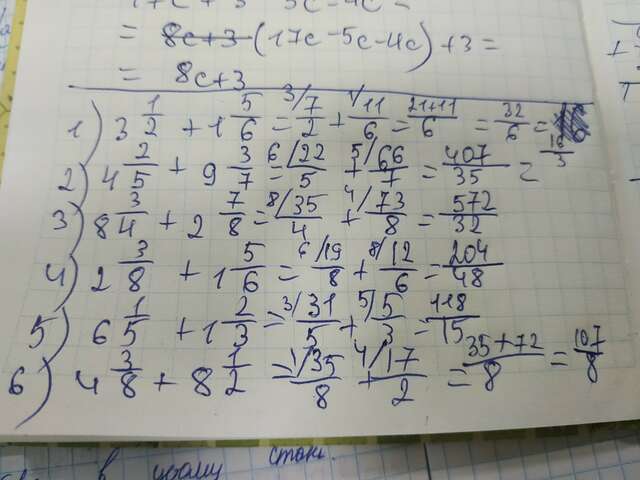 17c + 3 5c - 4c =
= 8c+3 (17c - 5c - 4c) + 3 =
= 8c+3
1) 3 1/2 + 1 5/6 = 3/ 7/2 + 1/ 11/6 = 21+11/6 = 32/6 = 16/3
2) 4 2/5 + 9 3/7 = 6/ 22/5 + 5/ 66/7 = 407/35 =
3) 8 3/4 + 2 7/8 = 8/ 35/4 + 4/ 73/8 = 572/32
4) 2 3/8 + 1 5/6 = 6/ 19/8 + 8/ 12/6 = 204/48
5) 6 1/5 + 1 2/3 = 3/ 31/5 + 5/ 5/3 = 118/15
6) 4 3/8 + 8 1/2 = 1/ 35/8 + 4/ 17/2 = 35+72/8 = 107/8
в цьому